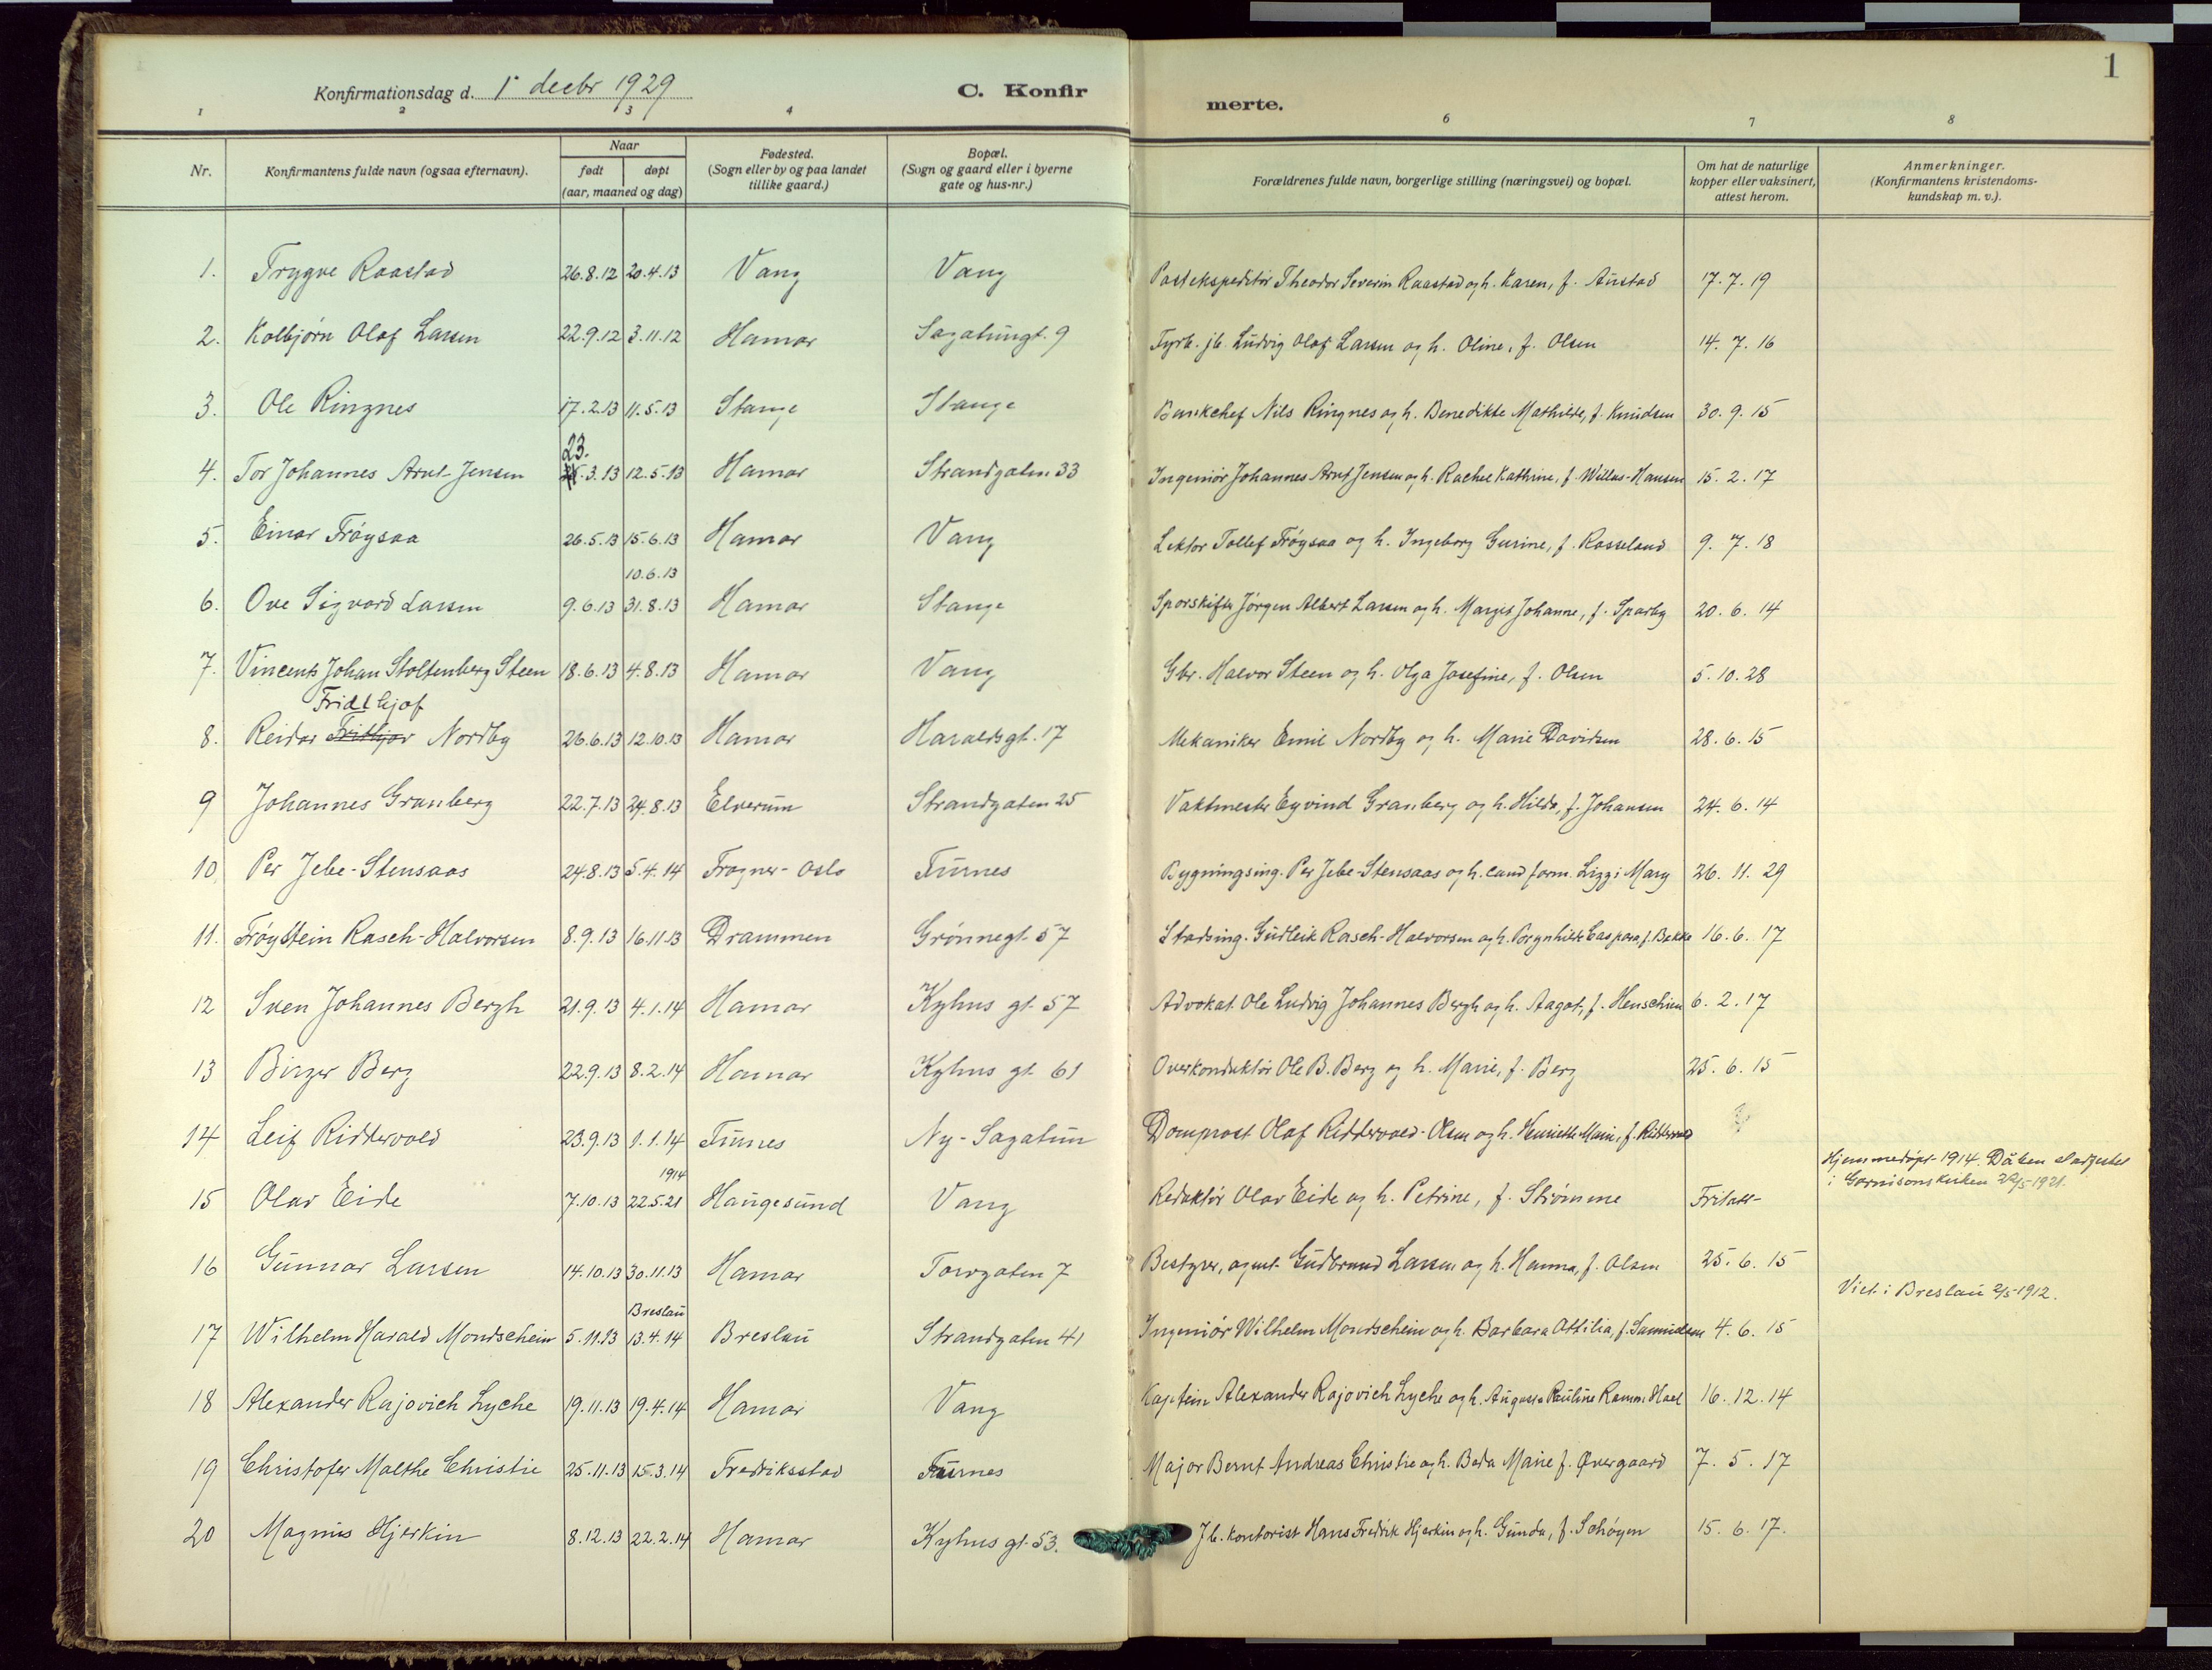 1
Konfirmationsdag d. 1. decbr 1929
C. Konfirmerte.
1 2 3 4 6 7 8
Nr. Konfirmantens fulde navn (ogsaa efternavn). Naar født døpt (aar, maaned og dag) Fødested. (Sogn eller by og paa landet tillike gaard.) Bopæl. (Sogn og gaard eller i byerne gate og hus-nr.) Forældrenes fulde navn, borgerlige stilling (næringsvei) og bopæl. Om hat de naturlige kopper eller vaksinert, attest herom. Anmerkninger. (Konfirmantens kristendoms-kundskap m. v.).
1. Trygve Raastad 26.8.12 20.4.13 Vang Vang Postekspeditør Theodor Severin Raastad og h. Karen, f. Austad 17.7.19
2. Kolbjørn Olaf Larsen 22.9.12 3.11.12 Hamar Sagatungt. 9 Fyrb. jb. Ludvig Olaf Larsen og h. Oline, f. Olsen 14.7.16
3. Ole Ringnes 17.2.13 11.5.13 Stange Stange Bankchef Nils Ringnes og h. Benedikte Mathilde, f. Knudsen 30.9.15
4. Tor Johannes Arnt-Jensen 23.3.13 12.5.13 Hamar Strandgaten 33 Ingeniør Johannes Arnt Jensen og h. Rachel Kathrine, f. Willas-Hansen 15.2.17
5. Einar Frøysaa 26.5.13 15.6.13 Hamar Vang Lektor Tollef Frøysaa og h. Ingeborg Gurine, f. Rosseland 9.7.18
10.6.13
6. Ove Sigvard Larsen 9.6.13 31.8.13 Hamar Stange Sporskifter Jørgen Albert Larsen og h. Margit Johanne, f. Sparby 20.6.14
7. Vincents Johan Stoltenberg Steen 18.6.13 4.8.13 Hamar Vang Gbr. Halvor Steen og h. Olga Josefine, f. Olsen 5.10.28
Fridthjof
8. Reidar Frithjov Nordby 26.6.13 12.10.13 Hamar Haraldsgt. 17 Mekaniker Emil Nordby og h. Marie Davidsen 28.6.15
9 Johannes Granberg 22.7.13 24.8.13 Elverum Strandgaten 25 Vaktmester Eyvind Granberg og h. Hilda, f. Johansen 24.6.14
10 Per Jebe-Stensaas 24.8.13 5.4.14 Frogner-Oslo Furnes Bygningsing. Per Jebe-Stensaas og h. cand farm. Lizzi Mary 26.11.29
11. Frøystein Rasch-Halvorsen 8.9.13 16.11.13 Drammen Grønnegt. 57 Stadsing. Gudleik Rasch-Halvorsen og h. Borgnhild Caspara, f. Bakke 16.6.17
12 Sven Johannes Bergh 21.9.13 4.1.14 Hamar Kyhns gt. 57 Advokat Ole Ludvig Johannes Bergh og h. Aagot, f. Henschien 6.2.17
13 Birger Berg 22.9.13 8.2.14 Hamar Kyhns gt. 61 Overkonduktør Ole B. Berg og h. Marie, f. Berg 25.6.15
14 Leif Riddervold 23.9.13 1.1.14 Furnes Ny-Sagatun Domprost Olaf Riddervold-Olsen og h. Henriette Marie, f. Riddervold
1914 Hjemmedøpt 1914. Dåben
15 Olav Eide 7.10.13 22.5.21 Haugesund Vang Redaktør Olav Eide og h. Petrine, f. Strømme Fritatt- i Garnisonskirken 22/5-1921.
16 Gunnar Larsen 14.10.13 30.11.13 Hamar Torvgaten 7 Bestyrer, agent Gudbrand Larsen og h. Hanna, f. Olsen 25.6.15
Breslau Viet i Breslau 2/5-1912.
17 Wilhelm Harald Mondschein 5.11.13 13.4.14 Breslau Strandgaten 41 Ingeniør Wilhelm Mondschein og h. Barbara Ottilia, f. Samuelsen 4.6.15
18 Alexander Rajovich Lyche 19.11.13 19.4.14 Hamar Vang Kaptein Alexander Rajovich Lyche og h. Augusta Pauline Ramm. Hael 16.12.14
19 Christofer Malthe Christie 25.11.13 15.3.14 Fredriksstad Furnes Major Bernt Andreas Christie og h. Beda Marie f. Øvergaard 7.5.17
20 Magnus Hjerkin 8.12.13 22.2.14 Hamar Kyhns gt. 53. Jb. kontorist Hans Fredrik Hjerkin og h. Gunda, f. Schøyen 15.6.17.